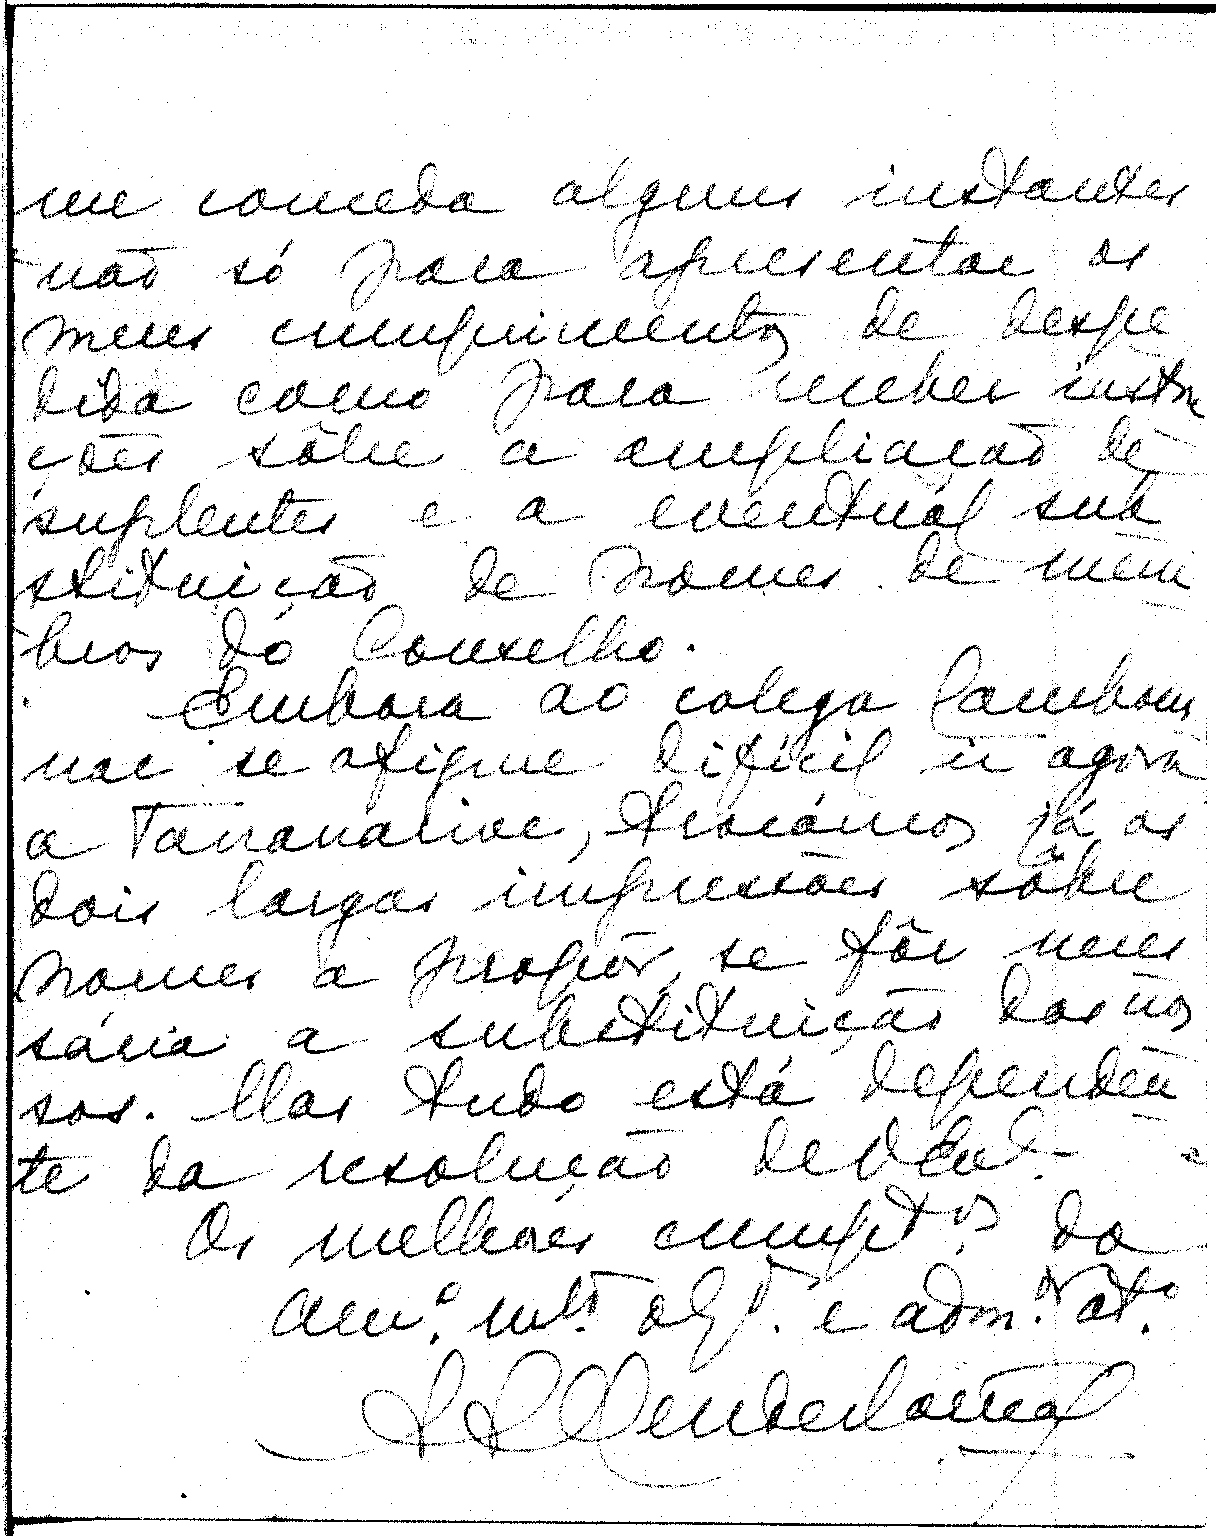 me conceda alguns instantes
não só para apresentar os
meus cumprimentos de despe
dida como para receber instru
ções sôbre a ampliação de
suplentes e a eventual sub
stituição de nomes de mem
bros do Conselho.
Embora ao colega
não se afigure difícil ir agora
a Tananarive, trocámos já os
dois largas impressões sôbre
nomes a propôr, se fôr neces
sária a substituição dos nos
sos. Mas tudo está dependen
te da resolução de V. Ex.
Os melhores cumptos. do
Amo. mto. obgo. e admor. ato.